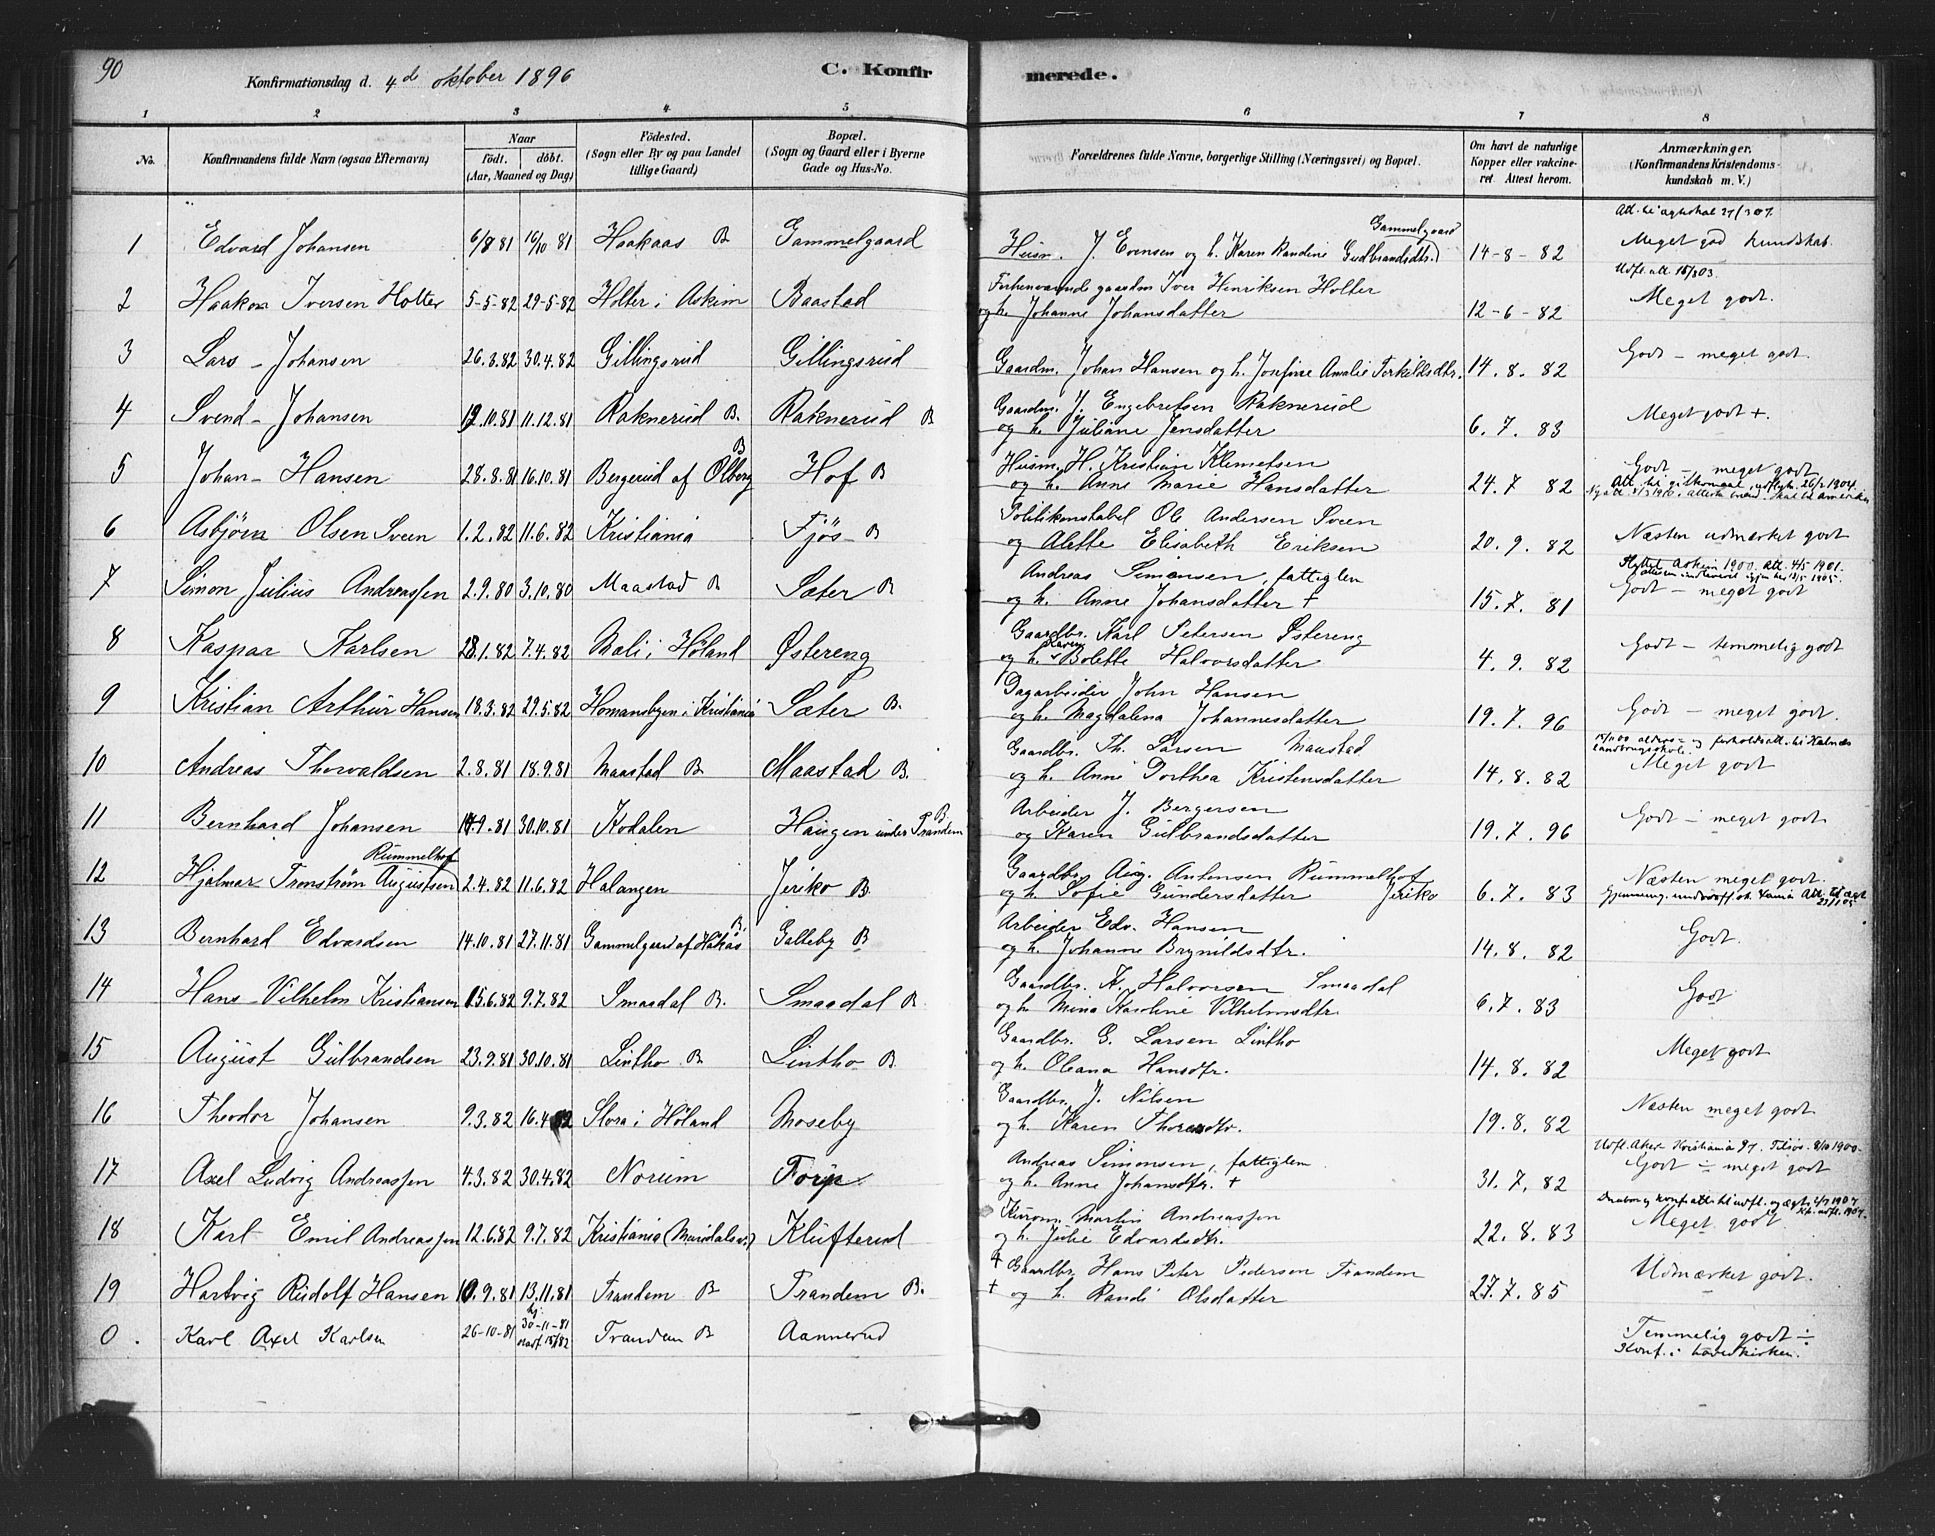 90
Konfirmationsdag d. 4de oktober 1896
C. Konfirmerede.
1 2 3 4 5 6 7 8
No. Konfirmandens fulde Navn (ogsaa Efternavn) Naar födt. döbt. (Aar, Maaned og Dag) Födested. (Sogn eller By og paa Landet tillige Gaard) Bopæl. (Sogn og Gaard eller i Byerne Gade og Hus-No. Forældrenes fulde Navne, borgerlige Stilling (Næringsvei) og Bopæl. Om havt de naturlige Kopper eller vakcineret. Attest herom. Anmærkninger. (Konfirmandens Kristendomskundskab m. V.)
1 Edvard Johansen 6/8 81 16/10 81 Haakaas B Gammelgaard Husm. J. Evensen og h. Karen Randine Gudbrandsdtr. Gammelgaard 14-8-82 Meget god kundskab.
2 Haakon Iversen Holter 5-5-82 29-5-82 Holter i Askim Baastad Forhenværende gaardm Iver Henriksen Holter
og h. Johanne Johansdatter 12-6-82 Udfl. att. Meget godt.
3 Lars Johansen 26.3.82 30.4.82 Gillingsrud Gillingsrud Gaardm. Johan Hansen og h. Josefine Amalie Torkildsdtr. 14.8.82 Godt - meget godt.
4 Svend Johansen 10.81 11.12.81 Raknerud B. Raknerud B Gaardm. J. Engebretsen Raknerud
og h. Juliane Jensdatter 6.7.83 Meget godt +.
5 Johan Hansen 28.8.81 16.10.81 Bergerud af Ølberg B Hof B Husm. H. Kristian Klemetsen
og h. Anne Marie Hansdatter 24.7 82 Godt - meget godt
6 Asbjörn Olsen Sveen 1.2.82 11.6.82 Kristiania Fjøs B Politikonstabel Ole Andersen Sveen
og Alette Elisabeth Eriksen 20.9.82 Næsten udmærket godt
7 Simon Julius Andreassen 2.9.80 3.10.80 Maastad B Sæter B Andreas Simensen, fattiglem
og h. Anne Johansdatter + 15.7.81 Flyttet Askim 1900. Att. 4/5 1901. Godt - meget godt
8 Kaspar Karlsen 28.1.82 7.4.82 Bæli i Høland Østereng Gaardbr. Karl Petersen Østereng
og h. Karen Bolette Halvorsdatter 4.9.82 Godt - temmelig godt
9 Kristian Arthur Hansen 18.3.82 29.5.82 Homansbyen i Kristiania Sæter B. Dagarbeider John Hansen
og h. Magdalena Johannesdatter 19.7.96 Godt - meget godt.
10 Andreas Thorvaldsen 2.8.81 18.9.81 Maastad B Maastad B. Gaardbr. Th. Larsen Maastad
og h. Anne Dorthea Kristensdatter 14.8.82 Meget godt
11 Bernhard Johansen 9.81 30.10.81 Kodalen Haugen under Trandem B. Arbeider J. Bergersen
og Karen Gulbrandsdatter 19.7.96 Godt - meget godt
12 Hjalmar Tronstrøm Augustsen Rummelhof 2.4.82 11.6.82 Halangen Jeriko B. Gaardbr. Aug. Antensen Rummelhof
og h. Sofie Gundersdatter Jeriko 6.7.83 Næsten meget godt.
13 Bernhard Edvardsen 14.10.81 27.11.81 Gammelgaard af Håkås B. Galleby B Arbeider Edv. Hansen
og h. Johanne Brynildsdtr. 14.8.82 Godt.
14 Hans Vilhelm Kristiansen 15.6.82 9.7.82 Smaadal B. Smaadal B Gaardbr. K. Halvorsen Smaadal
og h. Mina Karoline Vilhelmsdtr. 6.7.83 Godt
15 August Gulbrandsen 23.9.81 30.10.81 Lintho B Lintho B. Gaardbr. G. Larsen Lintho
og h. Oleana Hansdtr. 14.8.82 Meget godt
16 Theodor Johansen 9.3.82 16.4.82 Slora i Høland Moseby Gaardbr. J. Nilsen
og h. Karen Thoresdtr. 19.8.82 Næsten meget godt
17 Axel Ludvig Andreassen 4.3.82 30.4.82 Norum Andreas Simonsen, fattiglem
og h. Anne Johansdtr. + 31.7.82 Godt - meget godt
18 Karl Emil Andreassen 12.6.82 9.7.82 Kristiania Klufterud Martin Andreassen
og h. Julie Edvardsdtr. 22.8.83 Meget godt
19 Hartvig Rudolf Hansen 10.9.81 13.11.81 Trandem B Trandem B. + Gaardbr. Hans Peter Pedersen Trandem
+ og h. Randi Olsdatter 27.7.85 Udmærket godt.
0. Karl Axel Karlsen 26-10-81 hj. 30-11-81 Trandem B Aannerud Temmelig godt ÷
Konf. i hovedkirken.